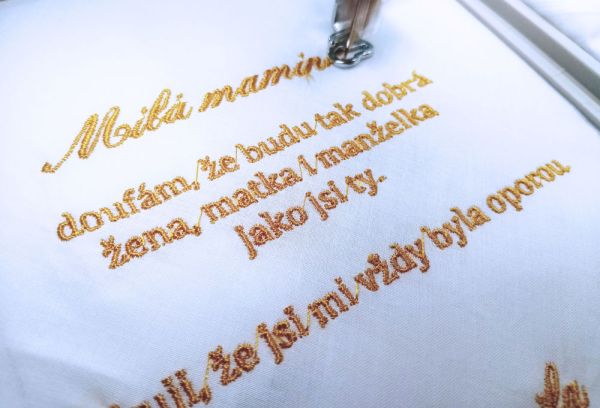 Milá
doufám, že budu tak dobrá
žena, matka i manželka
jako jsi ty.
že jsi mi vždy byla oporou